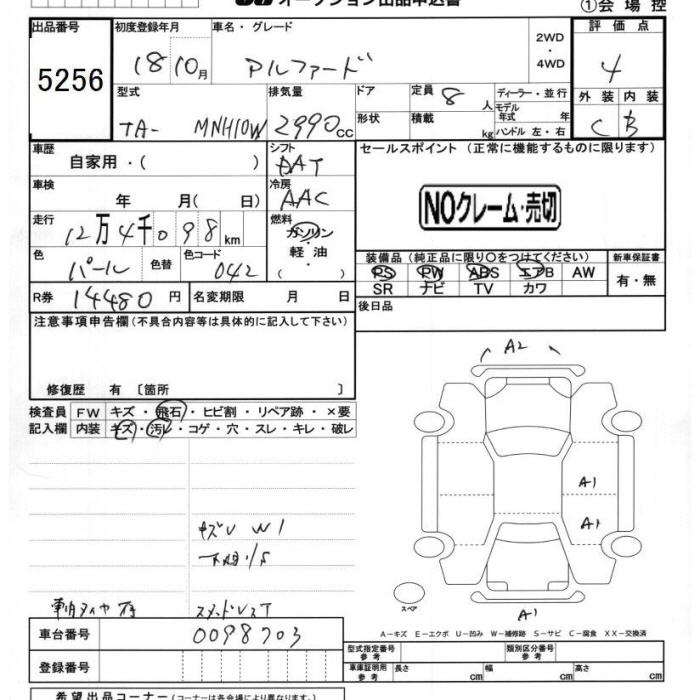 オークション出品申込書
①会場控
出品番号
5256
初度登録年月
18 10月
車名・グレード
アルファード
2WD
・
4WD
評価点
4
外装 内装
C B
型式
TA- MNH10W
排気量
2990cc
ドア
形状
定員 8 人
積載 kg
ディーラー・並行
モデル年式 年
ハンドル 左・右
車歴
自家用・( )
シフト
DAT
セールスポイント (正常に機能するものに限ります)
NOクレーム・売切
車検
年 月( 日)
冷房
AAC
走行
12万4千098km
燃料
ガソリン
軽油
( )
色
パール
色替
色コード
042
装備品 (純正品に限り○をつけてください)
PS PW ABS エアB AW
SR ナビ TV カワ
新車保証書
有・無
R券 14480円
名変期限 月 日
後日品
注意事項申告欄 (不具合内容等は具体的に記入して下さい)
修復歴 有 〔箇所 〕
検査員記入欄
FW キズ・飛石・ヒビ割・リペア跡・×要
内装 キズ・汚レ・コゲ・穴・スレ・キレ・破レ
A2
A1
A1
A1
キズU W1
スペア
A-キズ E-エクボ U-凹み W-補修跡 S-サビ C-腐食 XX-交換済
車台番号
0098703
登録番号
型式指定番号 参考
類別区分番号 参考
車庫証明用 参考
長さ cm
幅 cm
高さ cm
希望出品コーナー (コーナーは各会場により異なります)